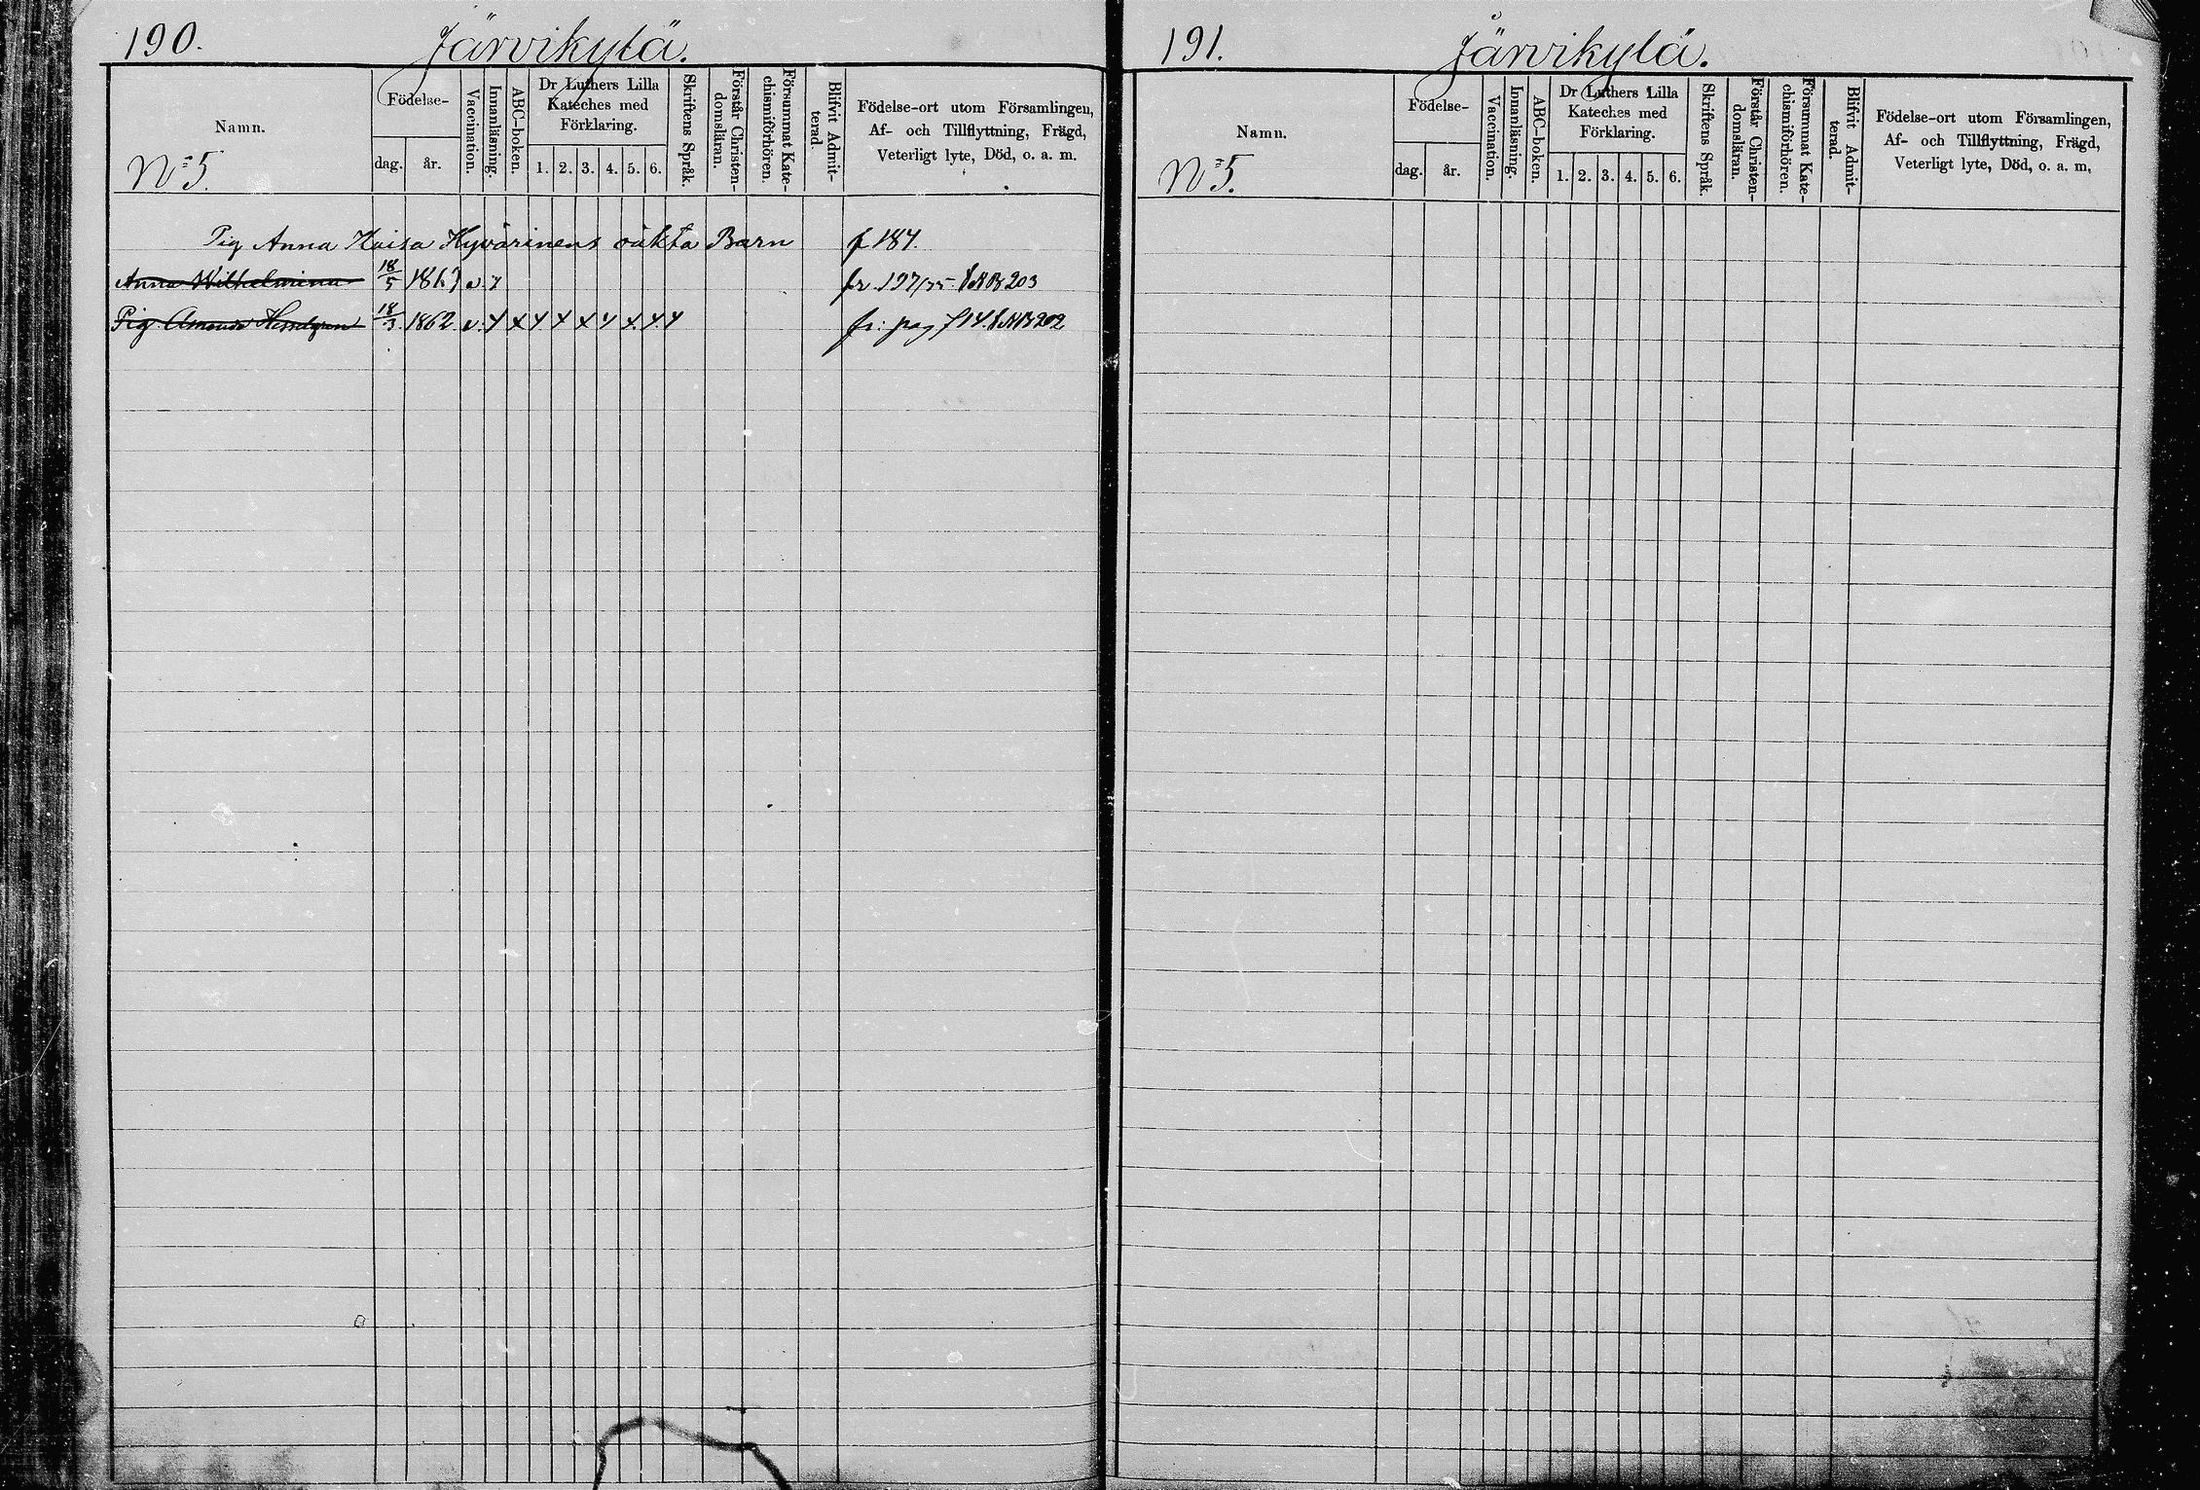 190. Järvikylä.
Namn.
No 5.
Födelse-
dag. år.
Vaccination.
Innanläsning.
ABC-boken.
Dr Luthers Lilla
Kateches med
Förklaring.
1. 2. 3. 4. 5. 6.
Skriftens Språk.
Förstår Christen-
domsläran.
Försummat Kate-
chismiförhören.
Blifvit Admit-
terad.
Födelse-ort utom Församlingen,
Af- och Tillflyttning, Frägd,
Veterligt lyte, Död, o. a. m.
Pig Anna Kaisa Hyvärinens oäkta Barn f 187.
Anna Wilhelmina 18/5 1867 v. x fr. 197/75 NB 203
Pig Amanda 18/3 1862 v. x x x x x x x x x fr: pag 714. NB 202
191. Järvikylä.
Namn.
No 5.
Födelse-
dag. år.
Vaccination.
Innanläsning.
ABC-boken.
Dr Luthers Lilla
Kateches med
Förklaring.
1. 2. 3. 4. 5. 6.
Skriftens Språk.
Förstår Christen-
domsläran.
Försummat Kate-
chismiförhören.
Blifvit Admit-
terad.
Födelse-ort utom Församlingen,
Af- och Tillflyttning, Frägd,
Veterligt lyte, Död, o. a. m.